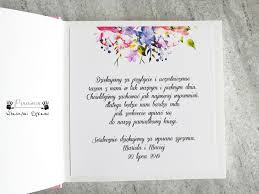 Dziękujemy za przybycie i uczestniczenie
razem z nami w tak ważnym i pięknym dniu.
Chcielibyśmy zachować jak najwięcej wspomnień,
dlatego będzie nam bardzo miło
jak zechcecie wpisać się
do naszej pamiątkowej księgi.
Serdecznie dziękujemy za wpisane życzenia.
Mariola i Maciej
22 lipca 2017